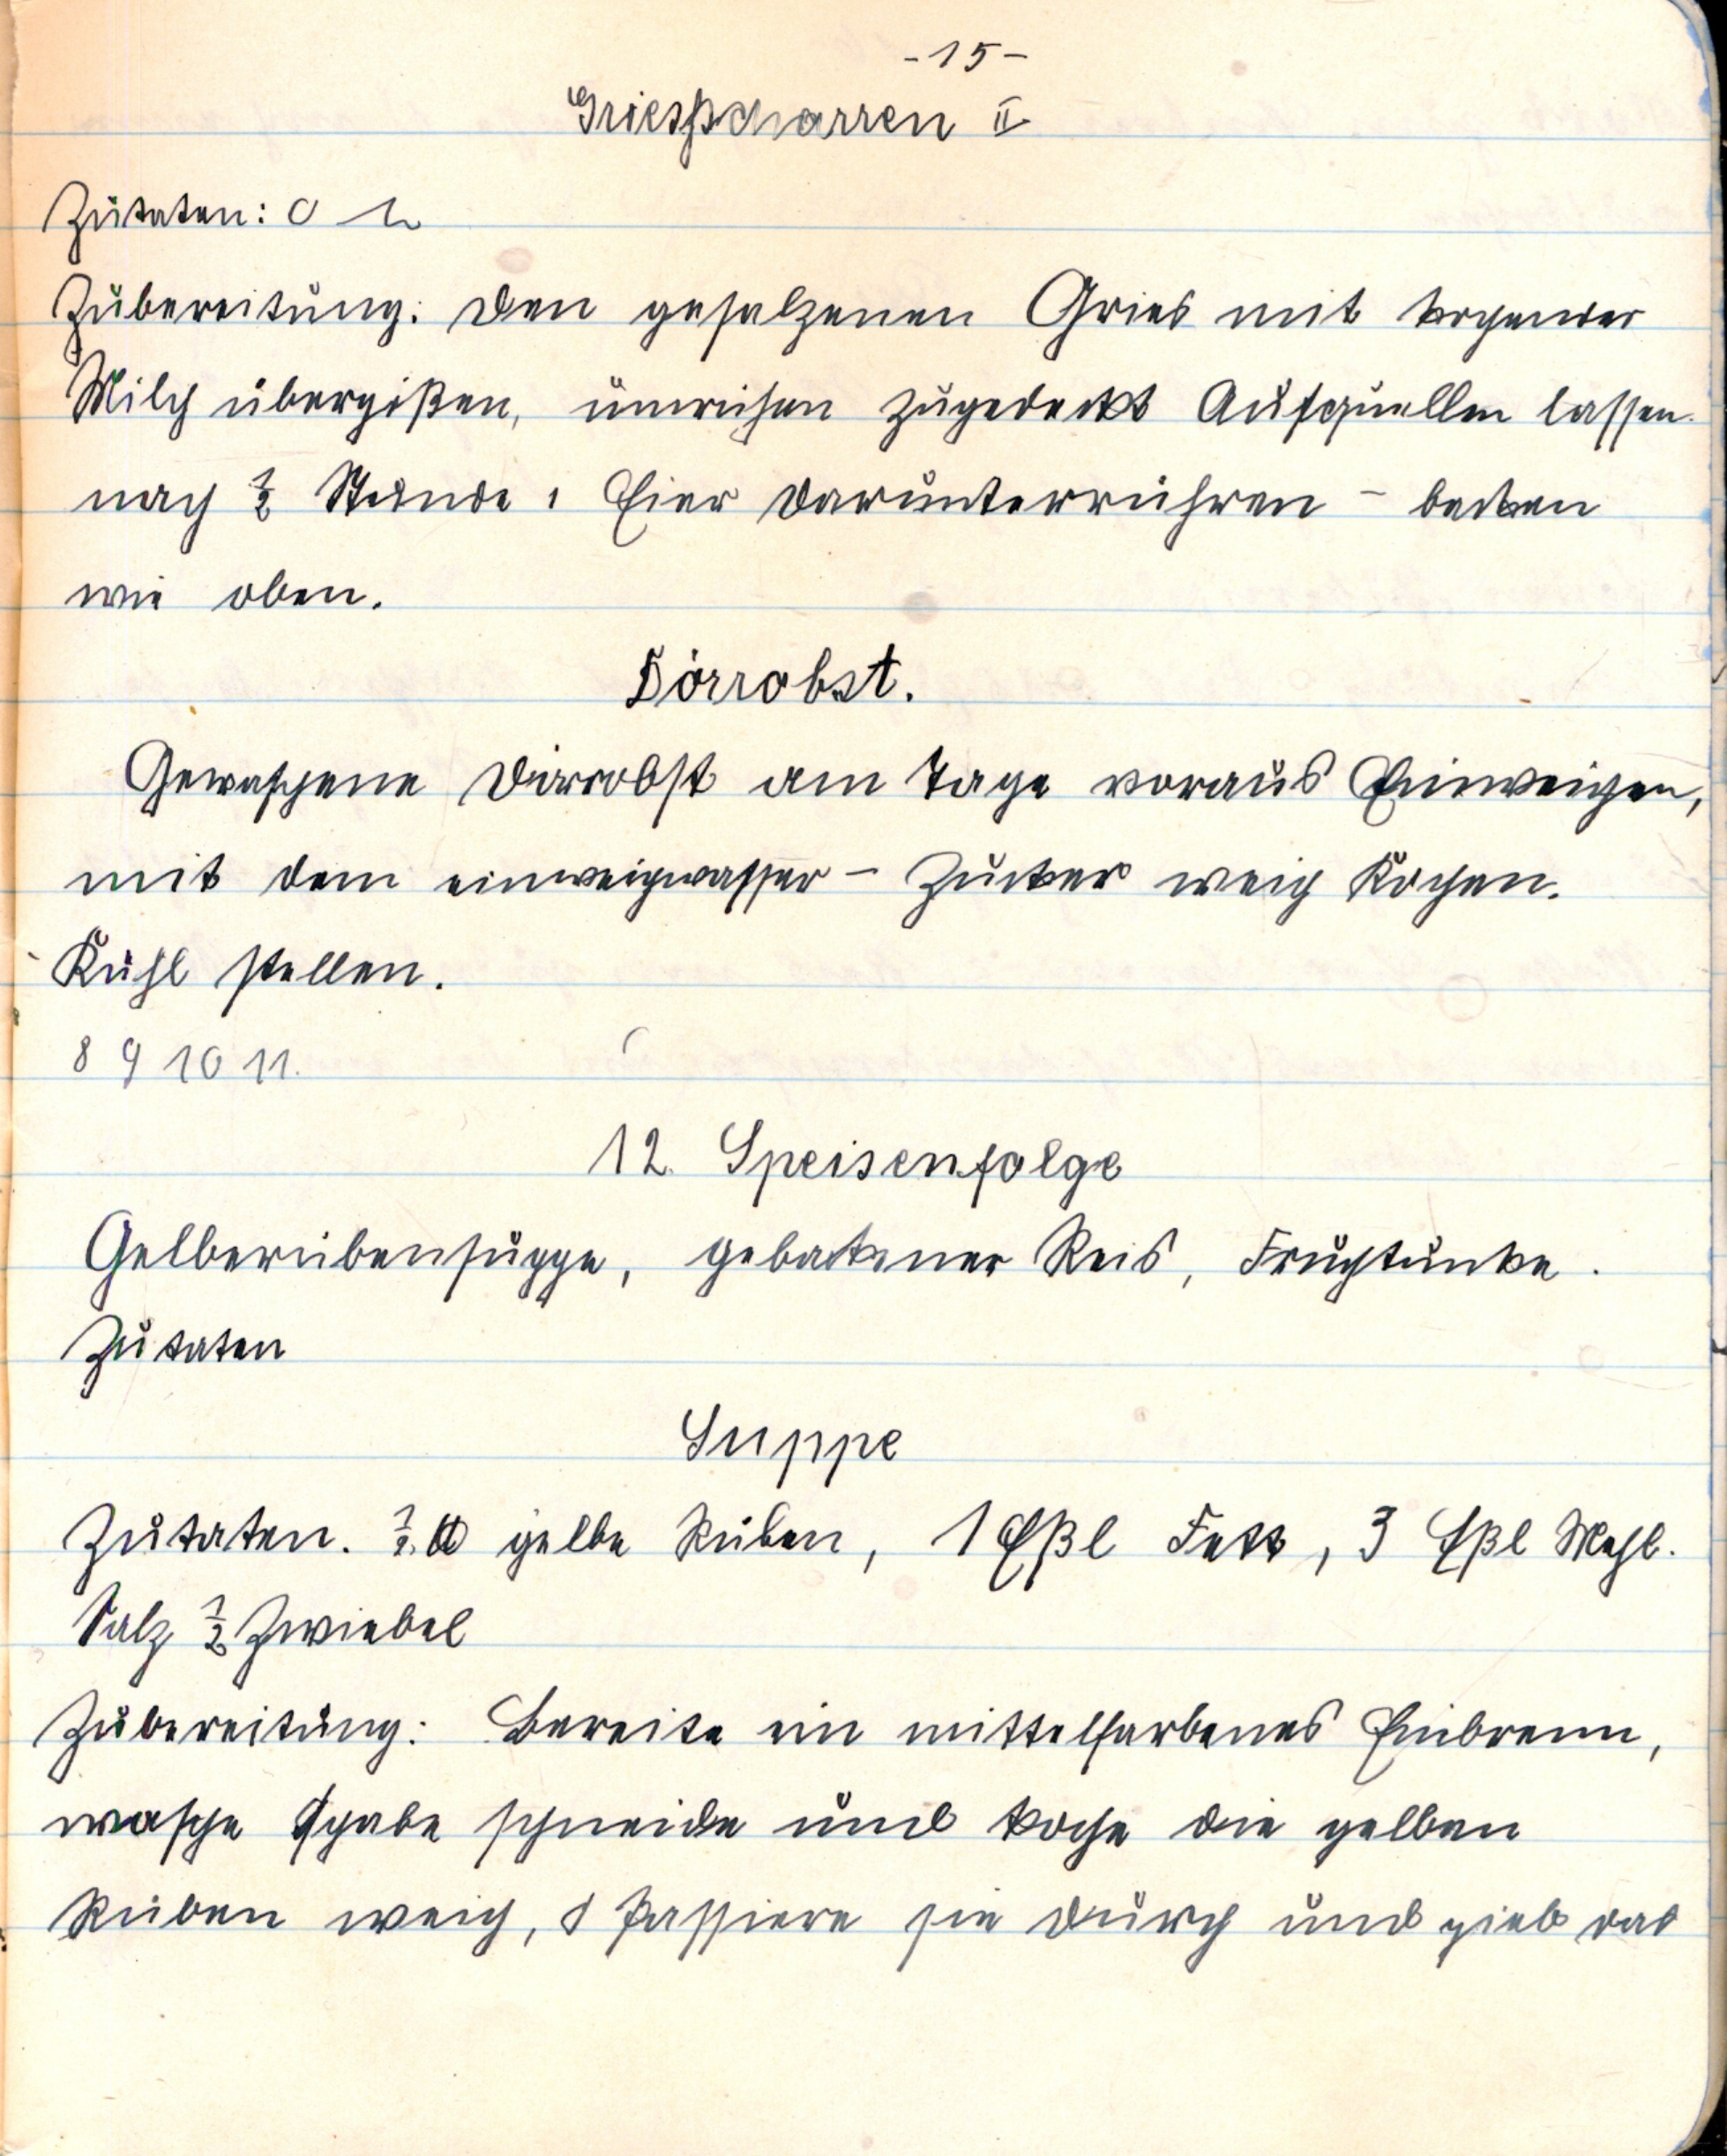 -15-
Griesscharren II
Zutaten: O
Zubereitung: Den gesalzenen Gries mit kochender
Milch übergißen, umrühren zugedeckt Aufquellen lassen.
nach ½ Stunde 1 Eier darunterrühren - backen
wie oben.
Dörrobst.
Gewaschene Dörrobst am Tage voraus Einweichen,
mit dem einweichwasser - Zucker weich Kochen.
Kühl stellen.
8 9 10 11.
12. Speisenfolge
Gelberübensuppe, gebackener Reis, Fruchtunke.
Zutaten
Suppe
Zutaten. ½ ℔ gelbe Rüben, 1 Eßl Fett, 3 Eßl Mehl.
Salz ½ Zwiebel
Zubereitung: Bereite ein mittelfarbenes Einbrenn,
wasche schabe schneide und koche die gelben
Rüben weich, Passiere sie durch und gieb das